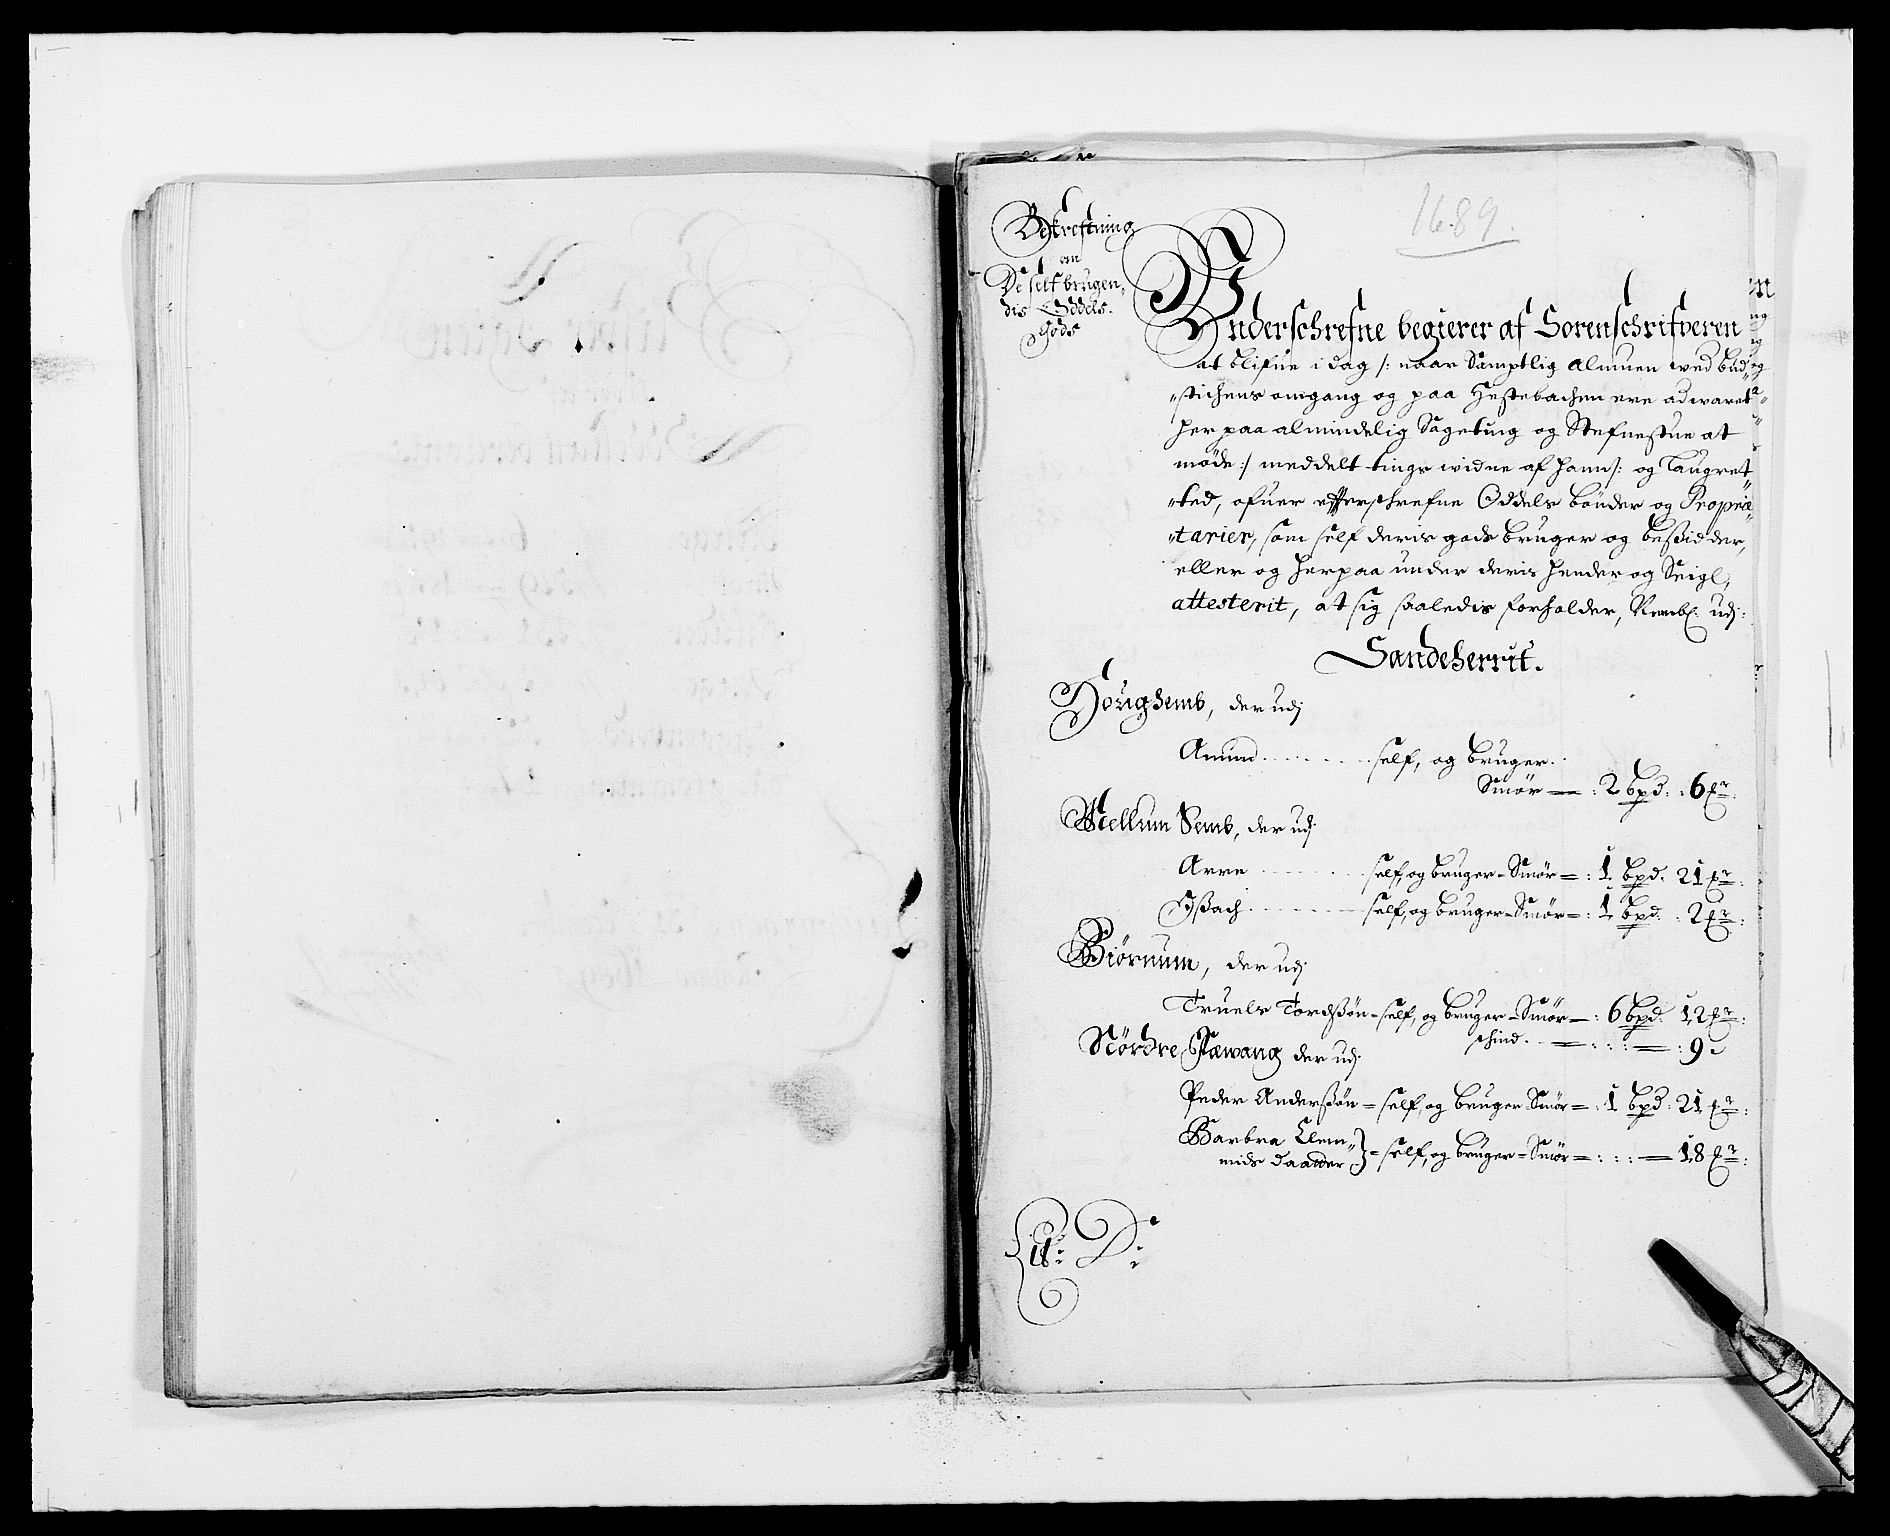 1689.
Bekreftning
om
De self brugen,
dis Oddels.
Gods
Underschrefne begierer af Sorenschrifveren
at blifue i dag /: naar Samptlig almuen wed bud„
„stichens omgang og paa Hestebachen ere adwaret
her paa almindelig Sageting og Stefnestue at
möde :/ meddelt tings widne af ham /: og Laugret„
„ted, ofuer efferschrefne Oddels bönder og Propriæ„
„tarier, som self deris gods bruger og besidder,
eller og herpaa under deris hender og Seigl,
attesterit, at sig saaledis forholder, Nembl: udj:
Sandeherrit.
Hörighsemb, der udj
Amund ........ self, og bruger.
Smör — : 2 bpd: : 6 ℔r.
Mellum Semb, der udj
Arre ........ self, og bruger - Smör = : 1 bpd. 21 ℔r:
Isßach ........ self, og bruger - Smör = : 1 bpd. : 2 ℔r:
Biörnum, der udj
Truels Tordßön - self, og bruger - Smör — : 6 bpd. 12 ℔r:
schind. — : : : — : 9 :
Nördre Fæwang der udj
Peder Anderßön = self, og bruger Smör = : 1 bpd: 21 ℔r:
Barbra Clem„
mids daatter } = self, og bruger = Smör = : : : — 18 ℔r:
Lit: D: